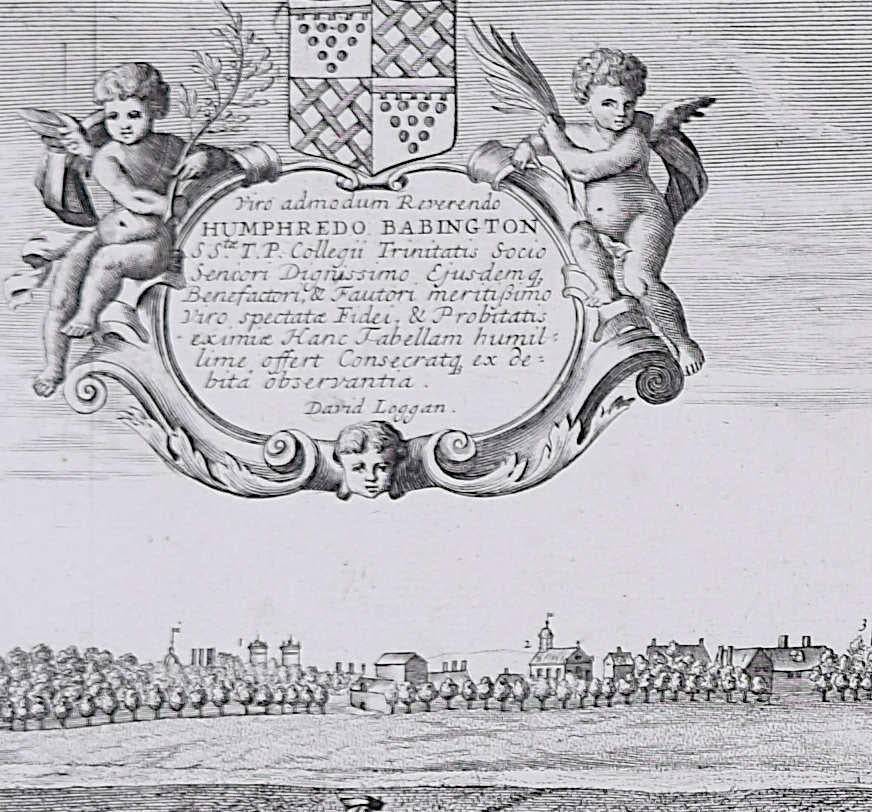 Viro admodum Reverendo
HUMPHREDO BABINGTON
S Stæ T.P. Collegii Trinitatis Socio
Seniori Dignissimo, Ejusdemq,
Benefactori, & Fautori meritißimo
Viro spectatæ Fidei, & Probitatis
eximiæ Hanc Tabellam humil=
lime offert Consecratq, ex de=
bita observantia.
David Loggan.
1
2
3